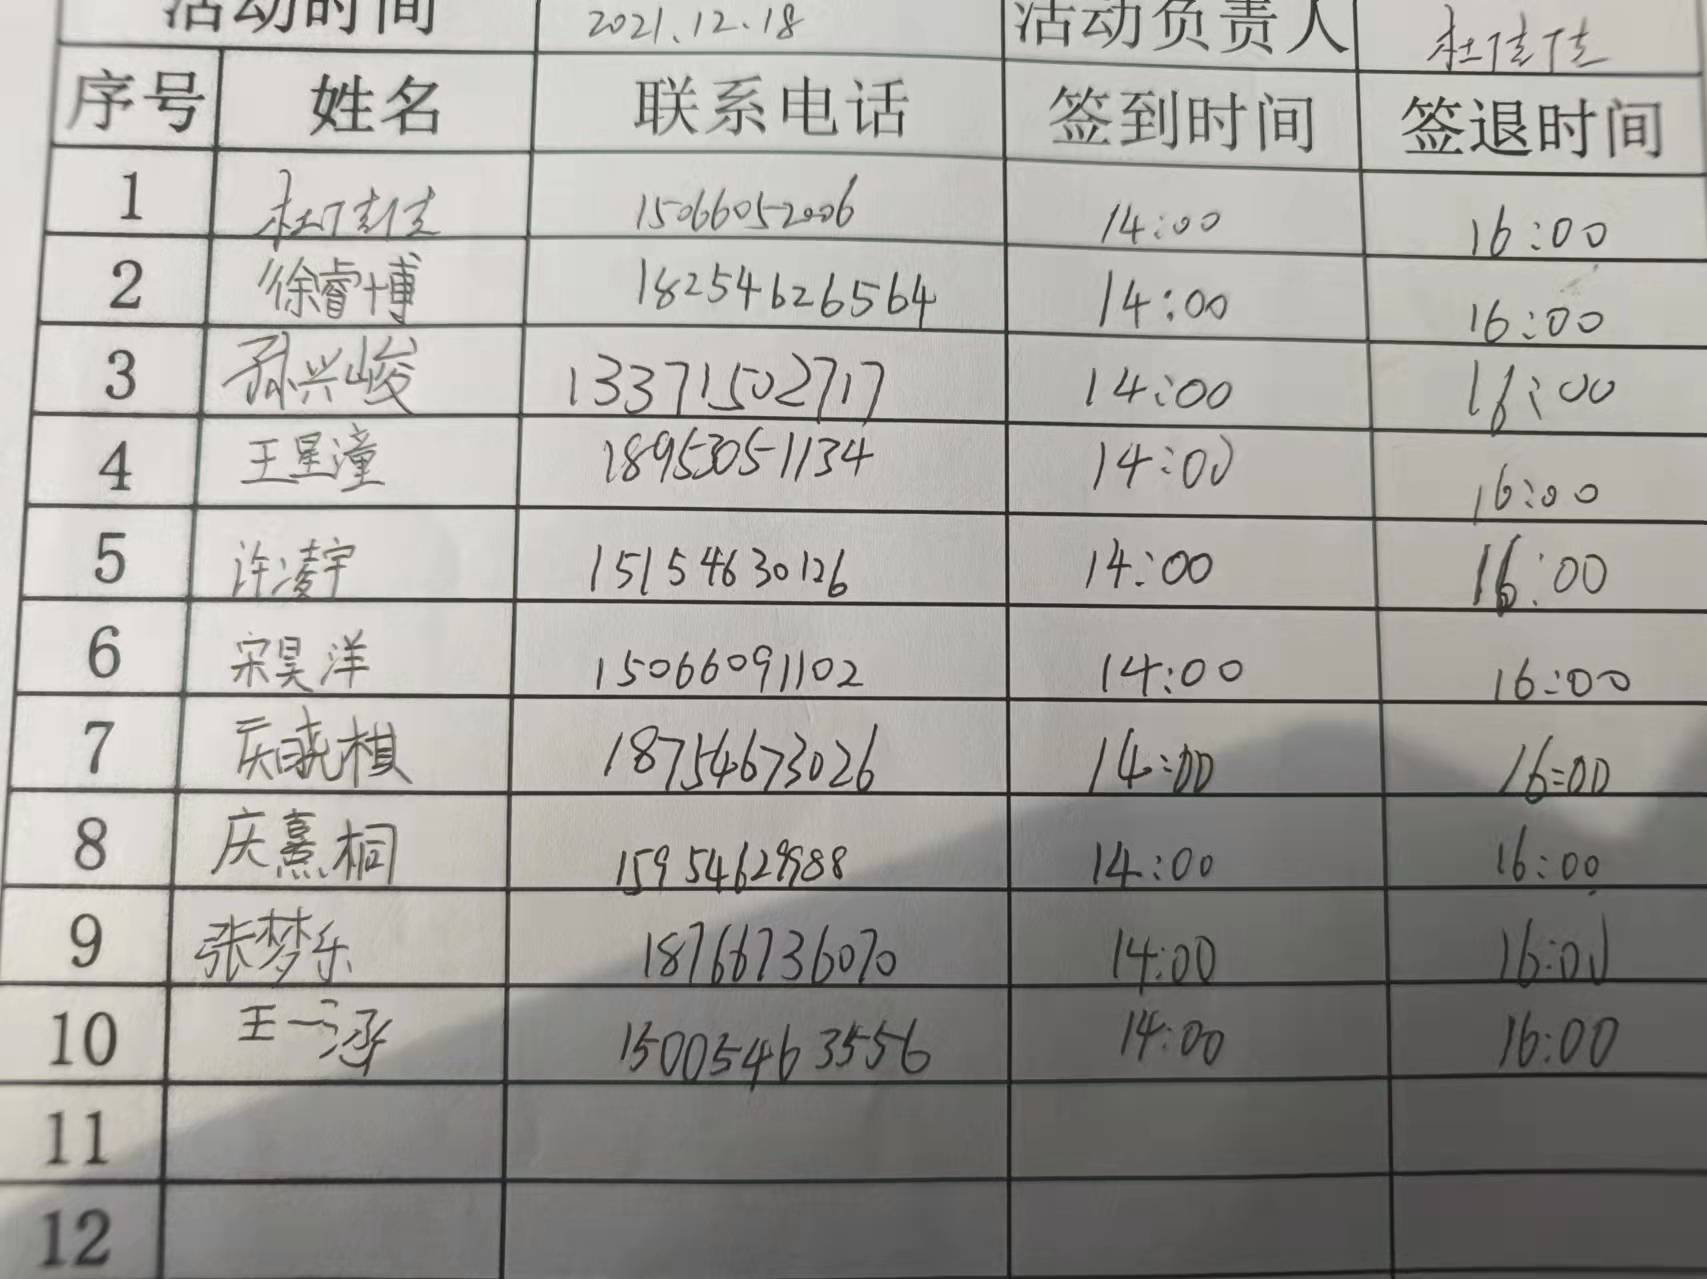 活动时间 2021.12.18 活动负责人 杜佳佳
序号 姓名 联系电话 签到时间 签退时间
1 杜佳佳 15066052006 14:00 16:00
2 徐睿博 18254626564 14:00 16:00
3 孙兴峻 13371502717 14:00 16:00
4 王星潼 18953051134 14:00 16:00
5 许凌宇 15154630126 14:00 16:00
6 宋昊洋 15066091102 14:00 16:00
7 庆晓棋 18754673026 14:00 16:00
8 庆熹桐 15954629988 14:00 16:00
9 张梦乐 18766736070 14:00 16:00
10 王一涵 15005463556 14:00 16:00
11
12